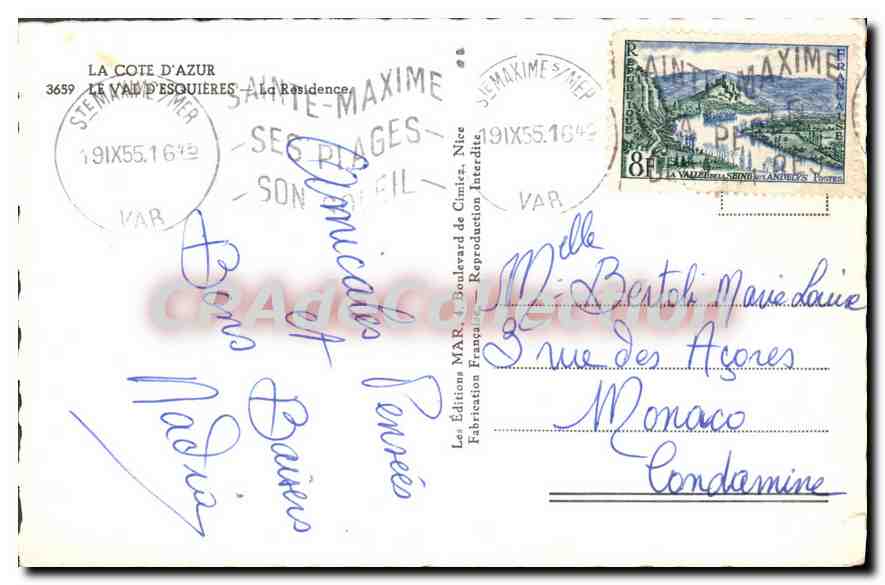 LA COTE D'AZUR
3659 LE VAL D'ESQUIÈRES — La Résidence
STE MAXIME S/MER
19 IX 55.16 45
VAR
SAINTE-MAXIME
SES PLAGES
SON SOLEIL
STE MAXIME S/MER
19 IX 55.16 45
VAR
REPUBLIQUE FRANÇAISE
8F
LA VALLEE DE LA SEINE AUX ANDELYS POSTES
Amicales Pensées
et Baisers
Bons
Nadia
Les Éditions MAR, 4, Boulevard de Cimiez, Nice
Fabrication Française. Reproduction Interdite.
Melle Bertoli Marie Louise
3 rue des Açores
Monaco
Condamine
CPAdeCollection